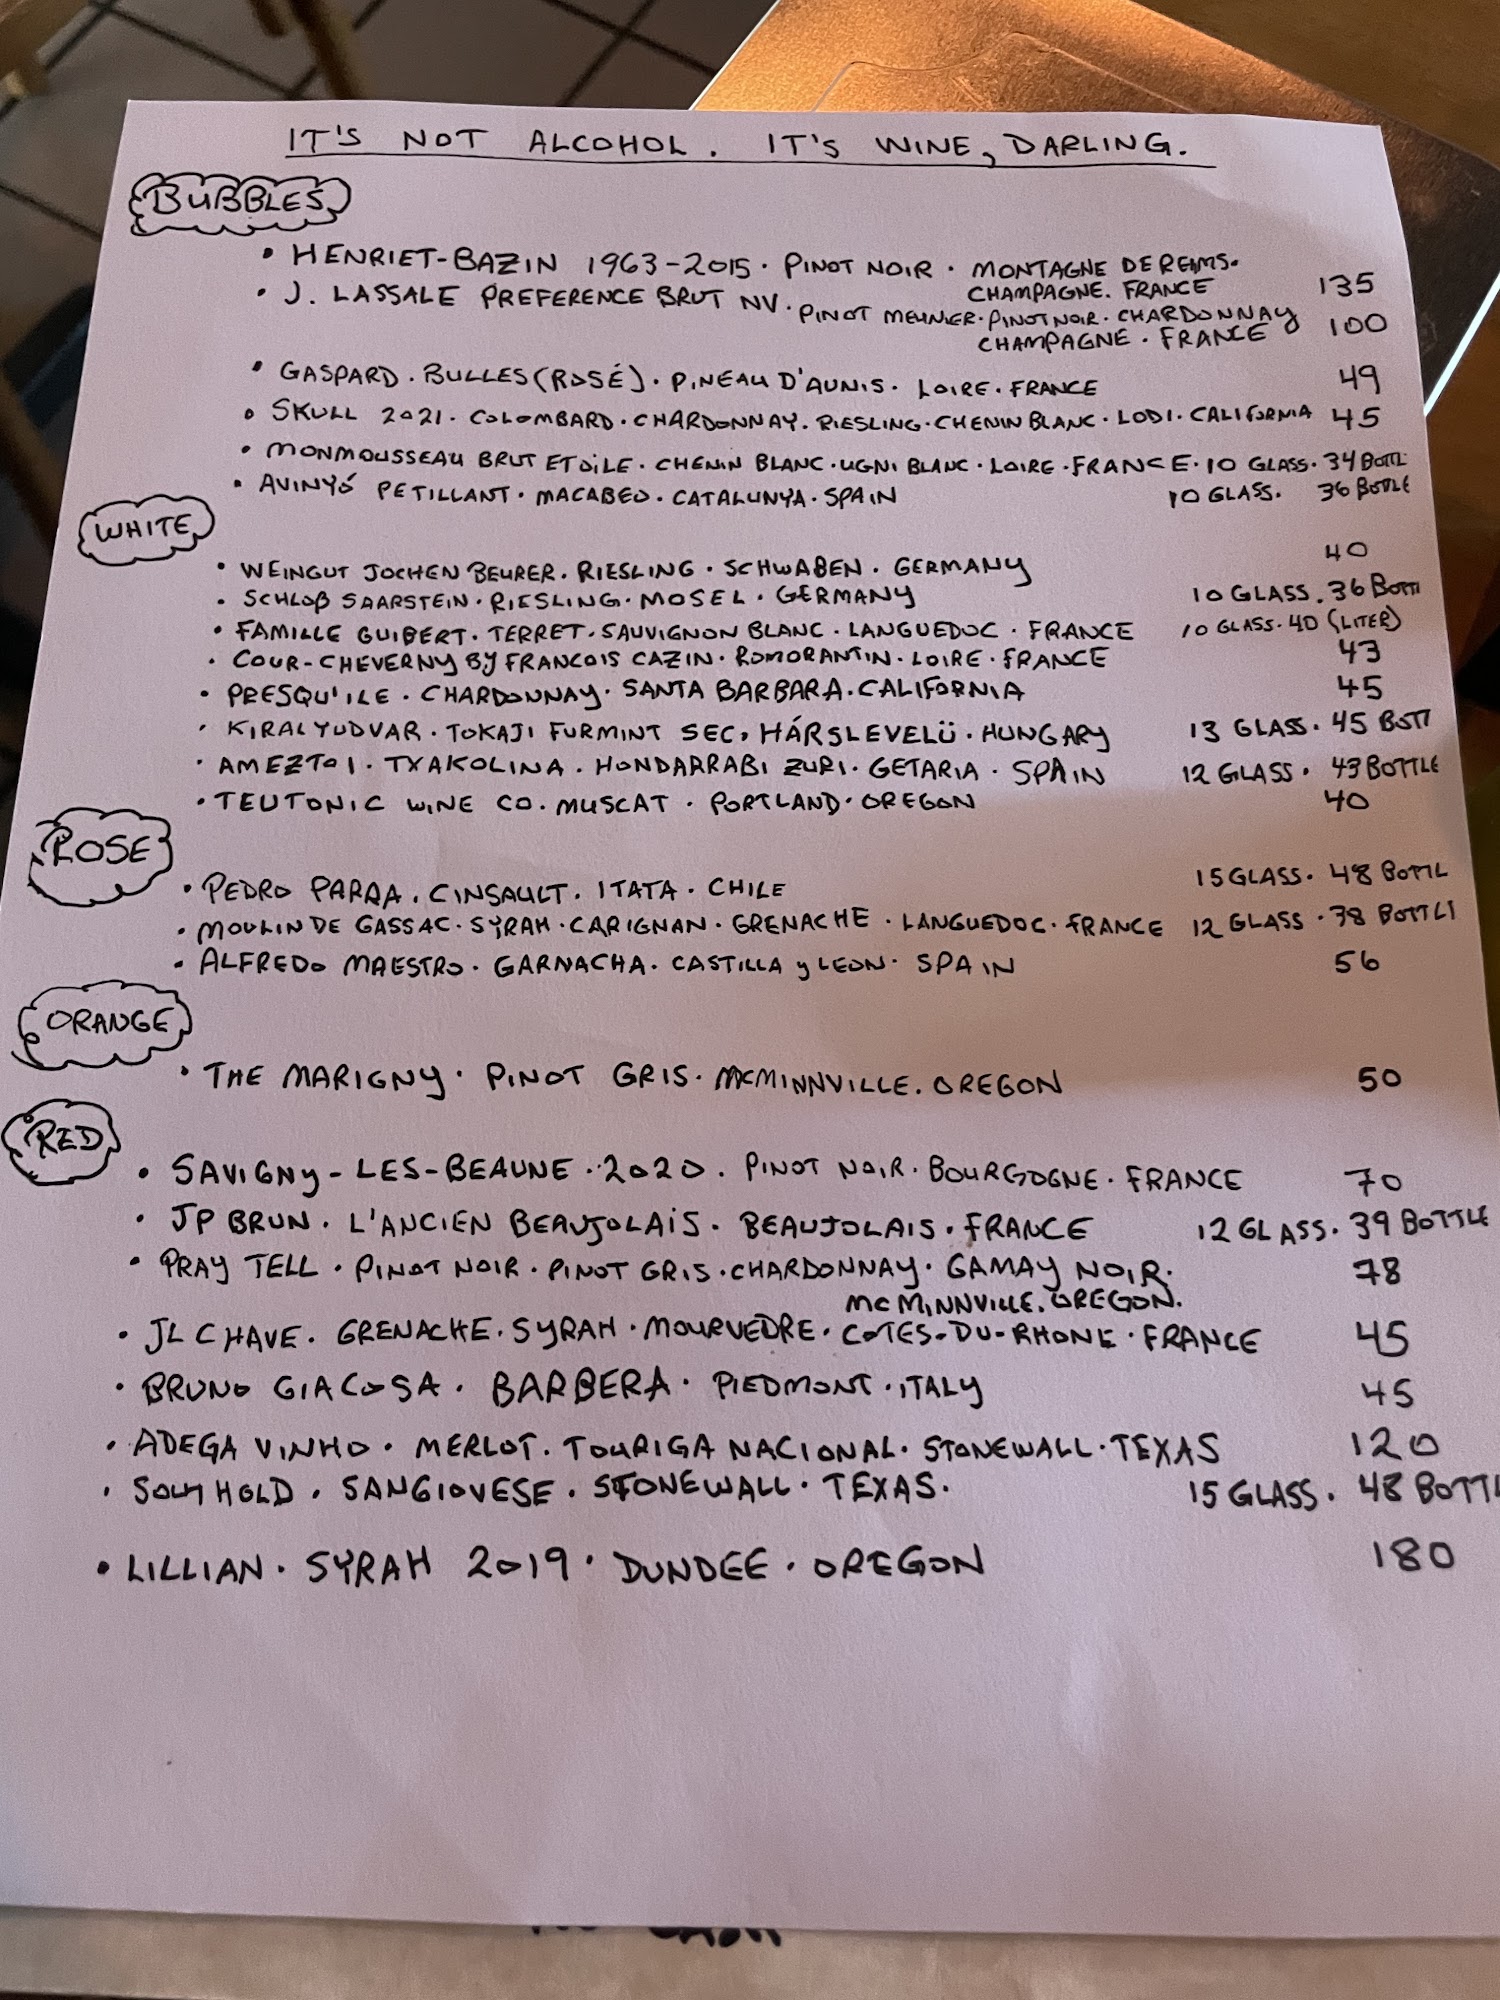 IT'S NOT ALCOHOL. IT'S WINE, DARLING.
BUBBLES
• HENRIET-BAZIN 1963-2015 · PINOT NOIR · MONTAGNE DE REIMS.
CHAMPAGNE. FRANCE 135
• J. LASSALE PREFERENCE BRUT NV. PINOT MEUNIER. PINOT NOIR. CHARDONNAY
CHAMPAGNE. FRANCE 100
• GASPARD. BULLES (ROSÉ). PINEAU D'AUNIS. LOIRE. FRANCE 49
• SKULL 2021. COLOMBARD. CHARDONNAY. RIESLING. CHENIN BLANC. LODI. CALIFORNIA 45
• MONMOUSSEAU BRUT ETOILE. CHENIN BLANC. UGNI BLANC. LOIRE. FRANCE. 10 GLASS. 34 BOTTL
• AVINYÓ PETILLANT. MACABEO. CATALUNYA. SPAIN 10 GLASS. 36 BOTTLE
WHITE
• WEINGUT JOCHEN BEURER. RIESLING. SCHWABEN. GERMANY 40
• SCHLOß SAARSTEIN. RIESLING. MOSEL. GERMANY 10 GLASS. 36 BOTTL
• FAMILLE GUIBERT. TERRET. SAUVIGNON BLANC. LANGUEDOC. FRANCE 10 GLASS. 40 (LITER)
• COUR-CHEVERNY BY FRANCOIS CAZIN. ROMORANTIN. LOIRE. FRANCE 43
• PRESQU'ILE. CHARDONNAY. SANTA BARBARA. CALIFORNIA 45
• KIRALYUDVAR. TOKAJI FURMINT SEC, HÁRSLEVELÜ. HUNGARY 13 GLASS. 45 BOTT
• AMEZTOI. TXAKOLINA. HONDARRABI ZURI. GETARIA. SPAIN 12 GLASS. 43 BOTTLE
• TEUTONIC WINE CO. MUSCAT. PORTLAND. OREGON 40
ROSE
• PEDRO PARRA. CINSAULT. ITATA. CHILE 15 GLASS. 48 BOTTL
• MOULIN DE GASSAC. SYRAH. CARIGNAN. GRENACHE. LANGUEDOC. FRANCE 12 GLASS. 38 BOTTL
• ALFREDO MAESTRO. GARNACHA. CASTILLA y LEON. SPAIN 56
ORANGE
• THE MARIGNY. PINOT GRIS. MCMINNVILLE. OREGON 50
RED
• SAVIGNY-LES-BEAUNE. 2020. PINOT NOIR. BOURGOGNE. FRANCE 70
• JP BRUN. L'ANCIEN BEAUJOLAIS. BEAUJOLAIS. FRANCE 12 GLASS. 39 BOTTLE
• PRAY TELL. PINOT NOIR. PINOT GRIS. CHARDONNAY. GAMAY NOIR. 78
MCMINNVILLE. OREGON.
• JL CHAVE. GRENACHE. SYRAH. MOURVEDRE. COTES-DU-RHONE. FRANCE 45
• BRUNO GIACOSA. BARBERA. PIEDMONT. ITALY 45
• ADEGA VINHO. MERLOT. TOURIGA NACIONAL. STONEWALL. TEXAS 120
• SOUTHOLD. SANGIOVESE. STONEWALL. TEXAS. 15 GLASS. 48 BOTTL
• LILLIAN. SYRAH 2019. DUNDEE. OREGON 180